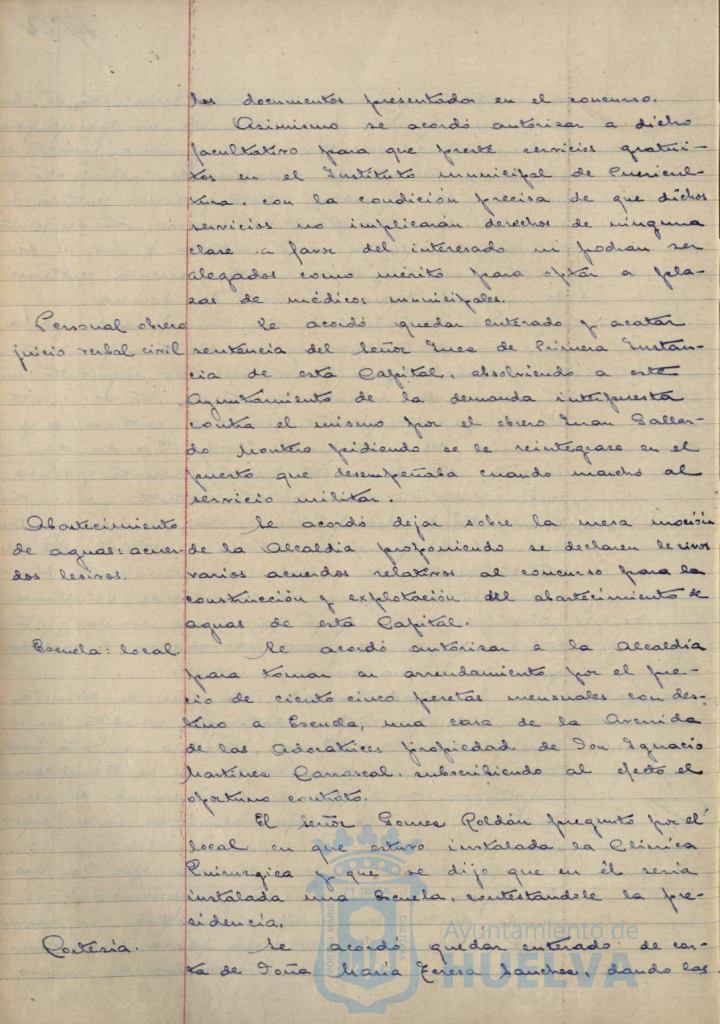 los documentos presentados en el concurso.
Asimismo se acordó autorizar a dicho
facultativo para que preste servicios gratui-
tos en el Instituto municipal de Puericul-
tura, con la condición precisa de que dichos
servicios no implicarán derechos de ninguna
clase a favor del interesado ni podrán ser
alegados como mérito para optar a pla-
zas de médicos municipales.
Personal obrero
juicio verbal civil
Se acordó quedar enterado y acatar
sentencia del Señor Juez de Primera Instan-
cia de esta Capital, absolviendo a este
Ayuntamiento de la demanda interpuesta
contra el mismo por el obrero Juan Gallar-
do Montero pidiendo se le reintegrase en el
puesto que desempeñaba cuando marchó al
servicio militar.
Abastecimiento
de aguas: acuer-
dos lesivos.
Se acordó dejar sobre la mesa moción
de la Alcaldía proponiendo se declaren lesivos
varios acuerdos relativos al concurso para la
construcción y explotación del abastecimiento de
aguas de esta Capital.
Escuela: local.
Se acordó autorizar a la Alcaldía
para tomar en arrendamiento por el pre-
cio de ciento cinco pesetas mensuales con des-
tino a Escuela, una casa de la Avenida
de las Adoratrices propiedad de Don Ignacio
Martínez Carrascal, subscribiendo al efecto el
oportuno contrato.
El Señor Gomez Roldán preguntó por el
local en que estuvo instalada la Clínica
Quirúrgica y que se dijo que en él sería
instalada una Escuela, contestándole la pre-
sidencia.
Cortesía.
Se acordó quedar enterado de car-
ta de Doña María Teresa Sanchez, dando las
Ayuntamiento de
HUELVA